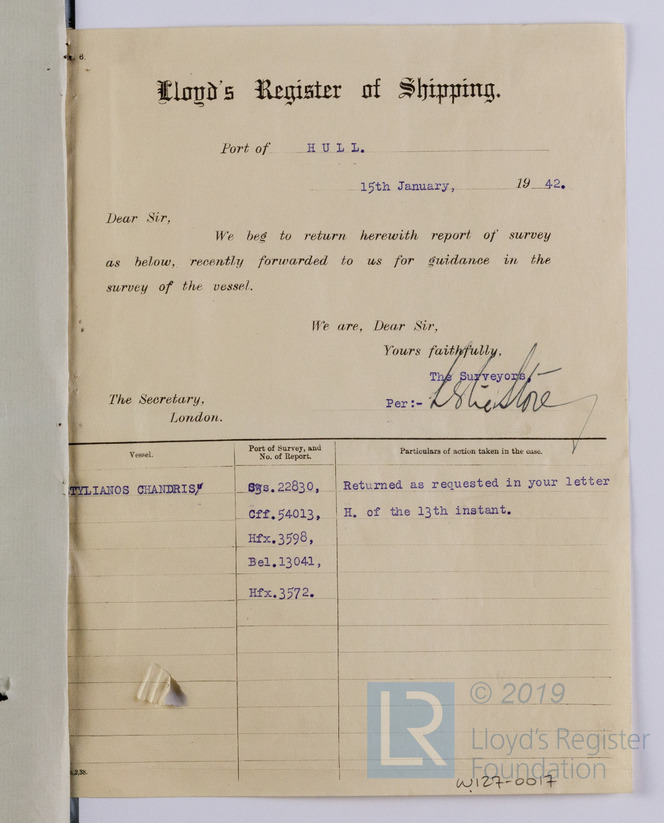 6.
Lloyd's Register of Shipping.
Port of HULL.
15th January, 19 42.
Dear Sir,
We beg to return herewith report of survey
as below, recently forwarded to us for guidance in the
survey of the vessel.
We are, Dear Sir,
Yours faithfully,
The Surveyors,
Per:-
The Secretary,
London.
Vessel. Port of Survey, and No. of Report. Particulars of action taken in the case.
TYLIANOS CHANDRIS 22830, Returned as requested in your letter
Cff.54013, H. of the 13th instant.
Hfx.3598,
Bel.13041,
Hfx.3572.
© 2019
LR
Lloyd's Register
Foundation
W127-0017